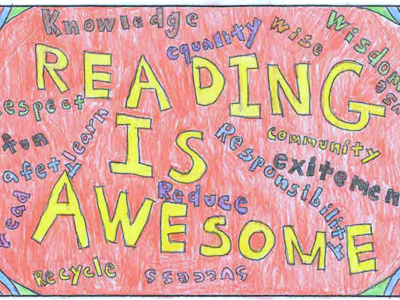 Knowledge
equality
wise
Wisdom
READING
espect
learn
fun
IS
community
Responsibility
exitemen
afety
read
Reduce
AWESOME
Recycle
success